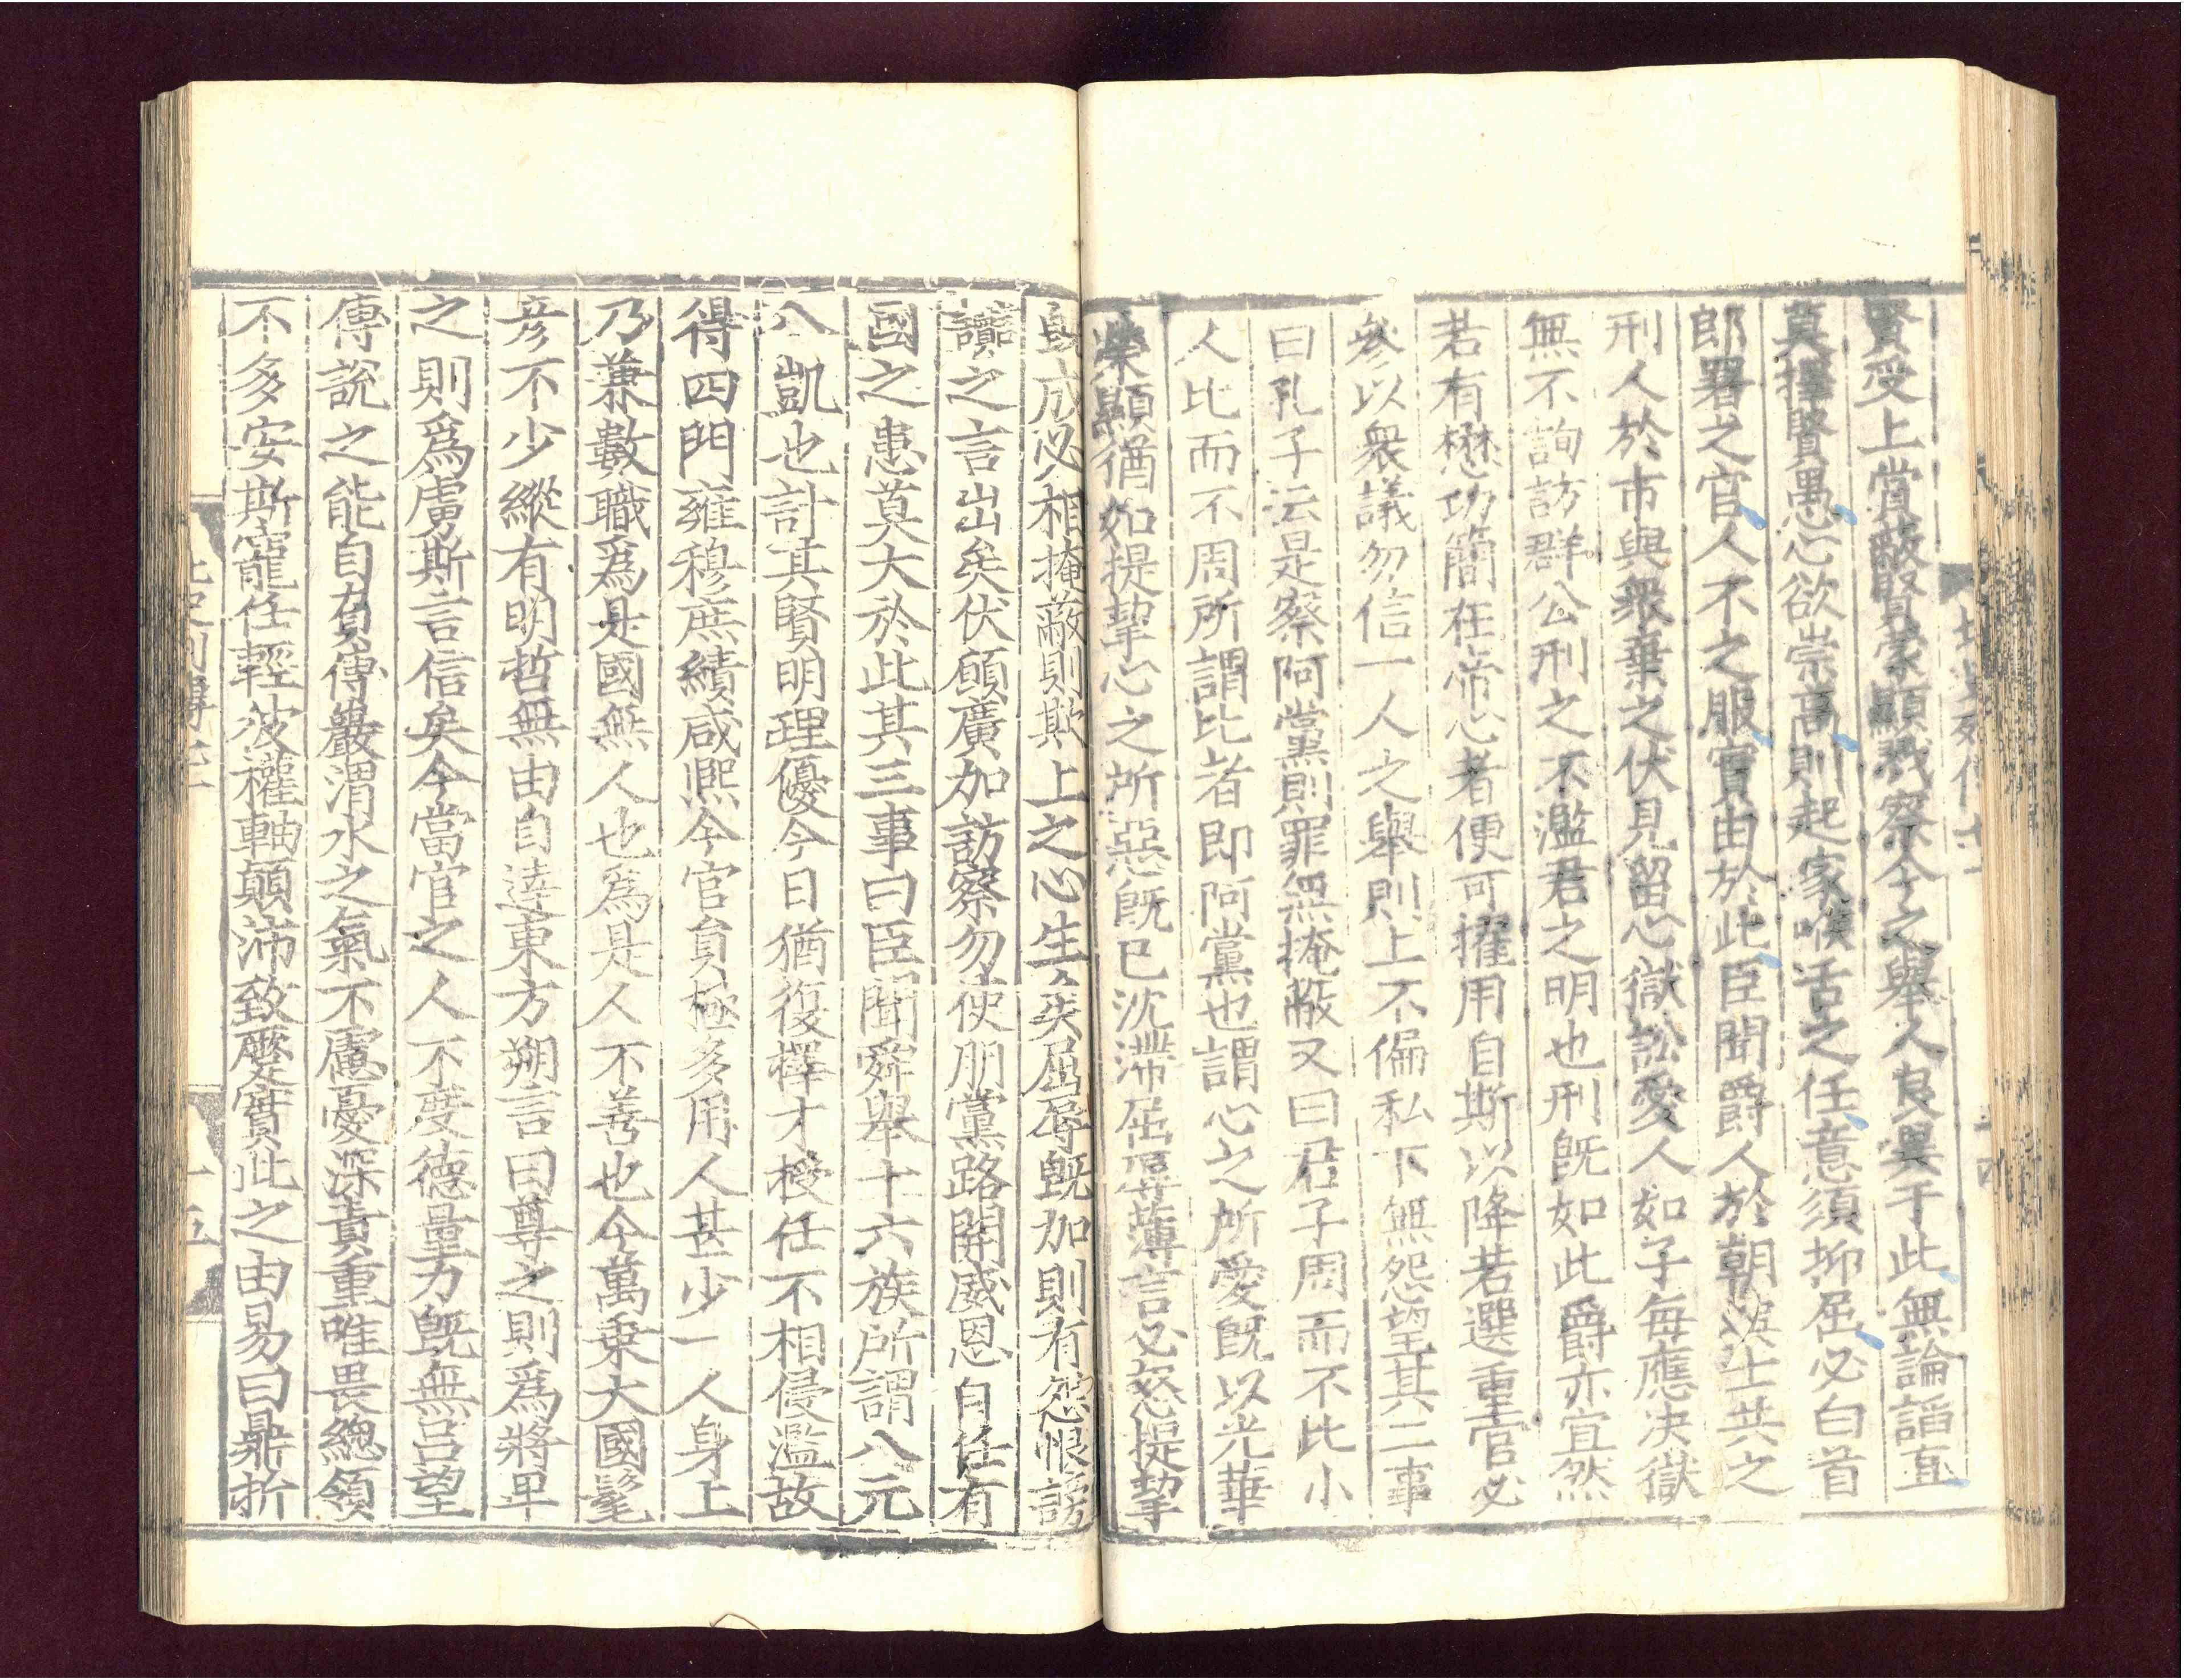 賢受上賞蔽賢蒙顯戮察今之舉人良異于此無論諂直
莫擇賢愚心欲崇高則起家喉舌之任意須抑屈必白首
郎署之官人不之服實由於此臣聞爵人於朝與士共之
刑人於市與衆棄之伏見留心獄訟愛人如子每應决獄
無不詢訪群公刑之不濫君之明也刑旣如此爵亦宜然
若有懋功簡在帝心者便可擢用自斯以降若選重官必
參以衆議勿信一人之舉則上不偏私下無怨望其二事
曰孔子云是察阿黨則罪無掩蔽又曰君子周而不比小
人比而不周所謂比者即阿黨也謂心之所愛旣以光華
榮顯猶如提挈心之所惡旣已沈滯屈辱薄言必怒提挈
旣成必相掩蔽則欺上之心生矣屈辱旣加則有怨恨謗
讟之言出矣伏願廣加訪察勿使朋黨路開威恩自任有
國之患莫大於此其三事曰臣聞舜舉十六族所謂八元
八凱也計其賢明理優今日猶復擇才授任不相侵濫故
得四門雍穆庶績咸熈今官員極多用人甚少一人身上
乃兼數職爲是國無人也爲是人不善也今萬乗大國髦
彦不少縱有明哲無由自逹東方朔言曰尊之則爲將卑
之則爲虜斯言信矣今當官之人不度德量力旣無吕望
傳說之能自負傳巖渭水之氣不慮憂深責重唯畏緫領
不多安斯寵任輕彼權軸顛沛致蹷實此之由易曰鼎折
北史列傳六十二
十五